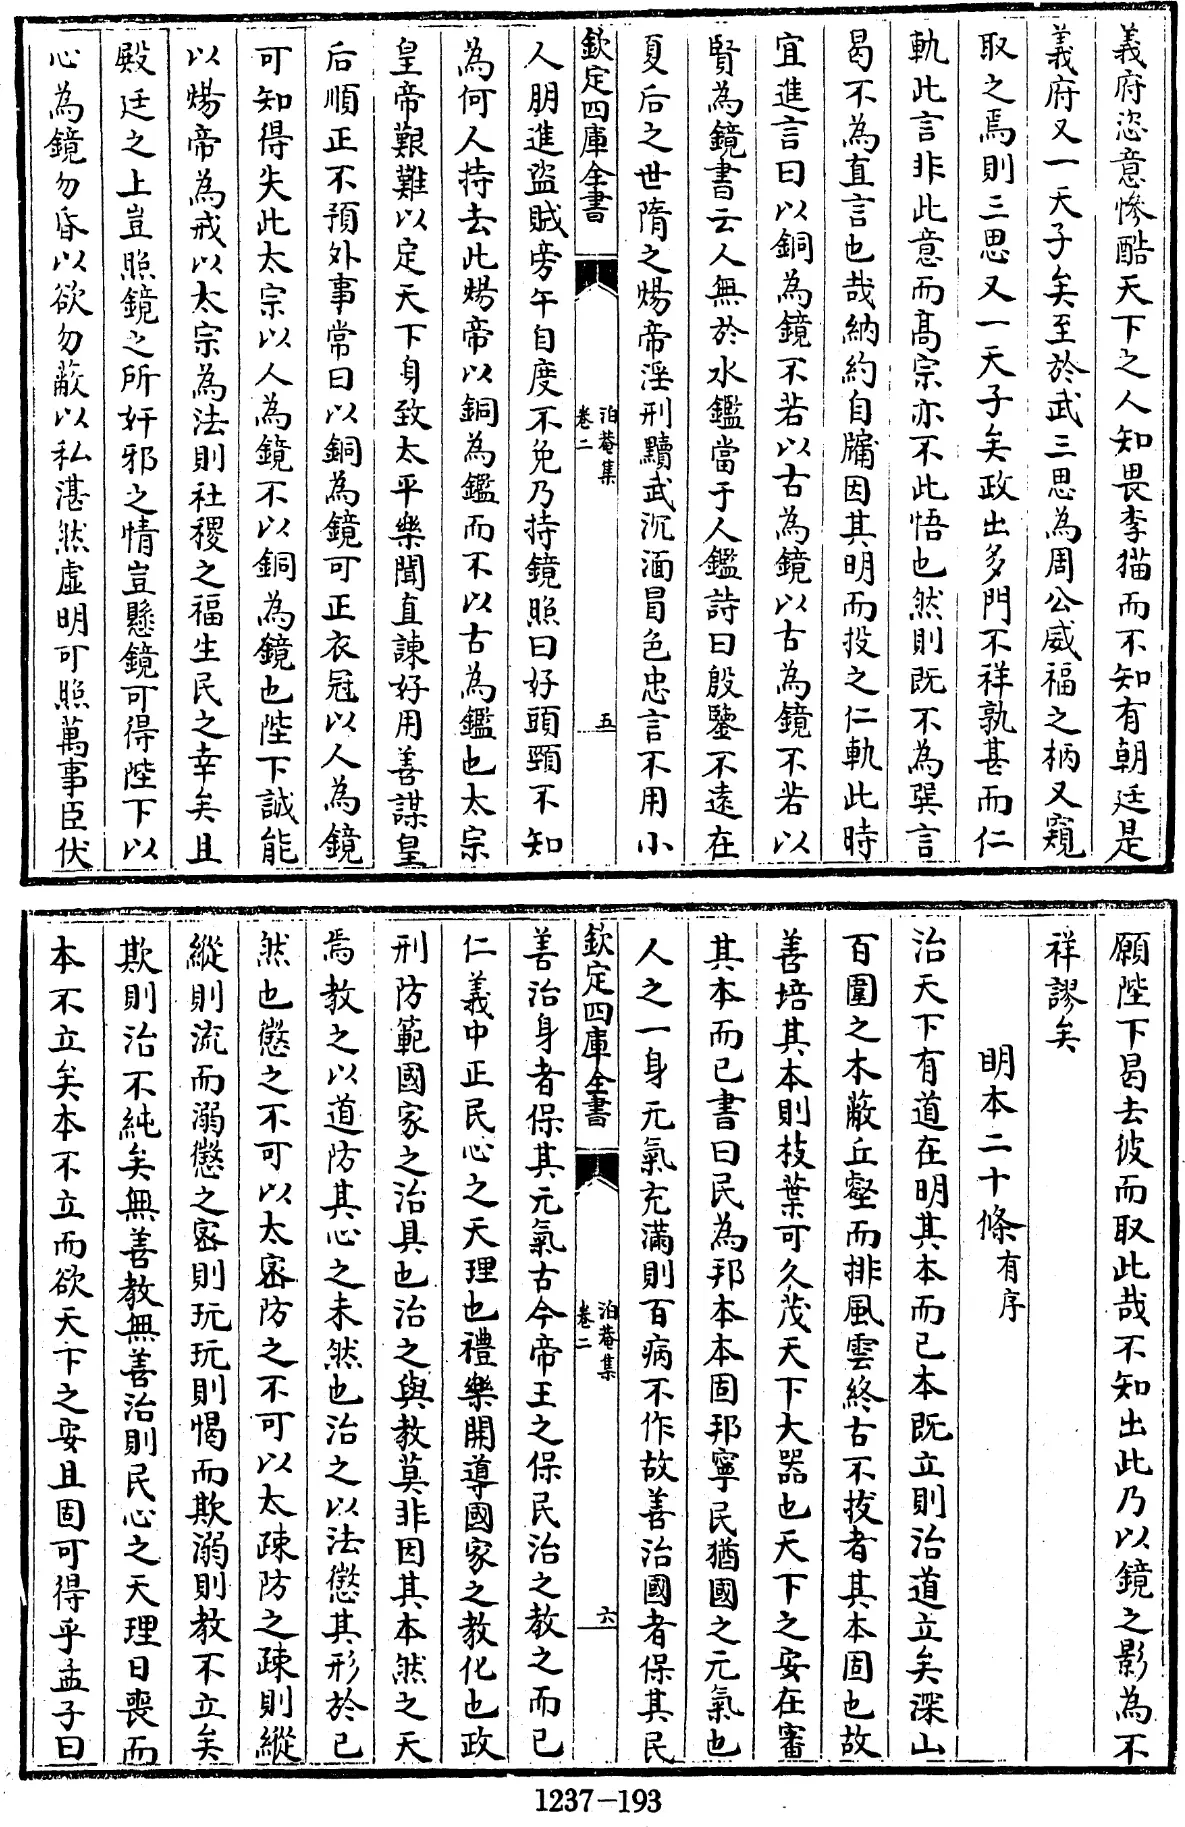 義府恣意慘酷天下之人知畏李猫而不知有朝廷是
義府又一天子矣至於武三思為周公威福之柄又窺
取之焉則三思又一天子矣政出多門不祥孰甚而仁
軌此言非此意而髙宗亦不此悟也然則既不為巽言
曷不為直言也哉納約自牖因其明而投之仁軌此時
宜進言曰以銅為鏡不若以古為鏡以古為鏡不若以
賢為鏡書云人無於水鑑當于人鑑詩曰殷鑒不遠在
夏后之世隋之煬帝淫刑黷武沉湎冒色忠言不用小
欽定四庫全書
泊菴集
卷二
五
人朋進盜賊旁午自度不免乃持鏡照曰好頭頸不知
為何人持去此煬帝以銅為鑑而不以古為鑑也太宗
皇帝艱難以定天下身致太平樂聞直諫好用善謀皇
后順正不預外事常曰以銅為鏡可正衣冠以人為鏡
可知得失此太宗以人為鏡不以銅為鏡也陛下誠能
以煬帝為戒以太宗為法則社稷之福生民之幸矣且
殿廷之上豈照鏡之所奸邪之情豈懸鏡可得陛下以
心為鏡勿昏以欲勿蔽以私湛然虛明可照萬事臣伏
願陛下曷去彼而取此哉不知出此乃以鏡之影為不
祥謬矣
明本二十條有序
治天下有道在明其本而已本既立則治道立矣深山
百圍之木蔽丘壑而排風雲終古不拔者其本固也故
善培其本則枝葉可久茂天下大器也天下之安在審
其本而已書曰民為邦本本固邦寧民猶國之元氣也
人之一身元氣充滿則百病不作故善治國者保其民
欽定四庫全書
泊菴集
卷二
六
善治身者保其元氣古今帝王之保民治之教之而已
仁義中正民心之天理也禮樂開導國家之教化也政
刑防範國家之治具也治之與教莫非因其本然之天
焉教之以道防其心之未然也治之以法懲其形於已
然也懲之不可以太密防之不可以太疎防之疎則縱
縱則流而溺懲之密則玩玩則愒而欺溺則教不立矣
欺則治不純矣無善教無善治則民心之天理日喪而
本不立矣本不立而欲天下之安且固可得乎孟子曰
1237-193